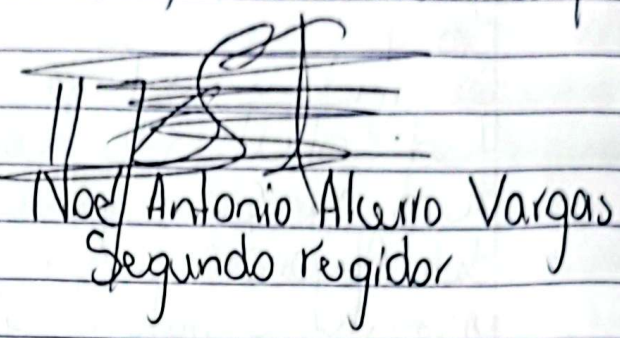 Noel Antonio Vargas
Segundo regidor